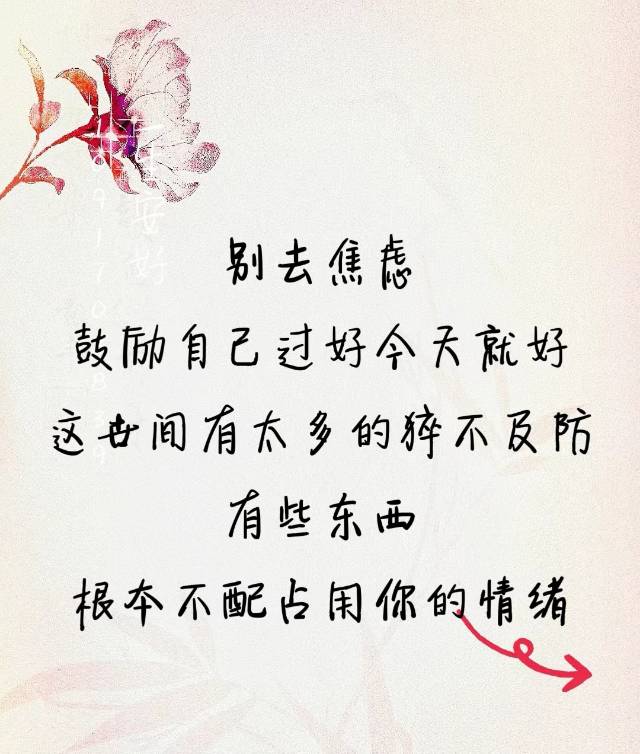 别去焦虑
鼓励自己过好今天就好
这世间有太多的猝不及防
有些东西
根本不配占用你的情绪